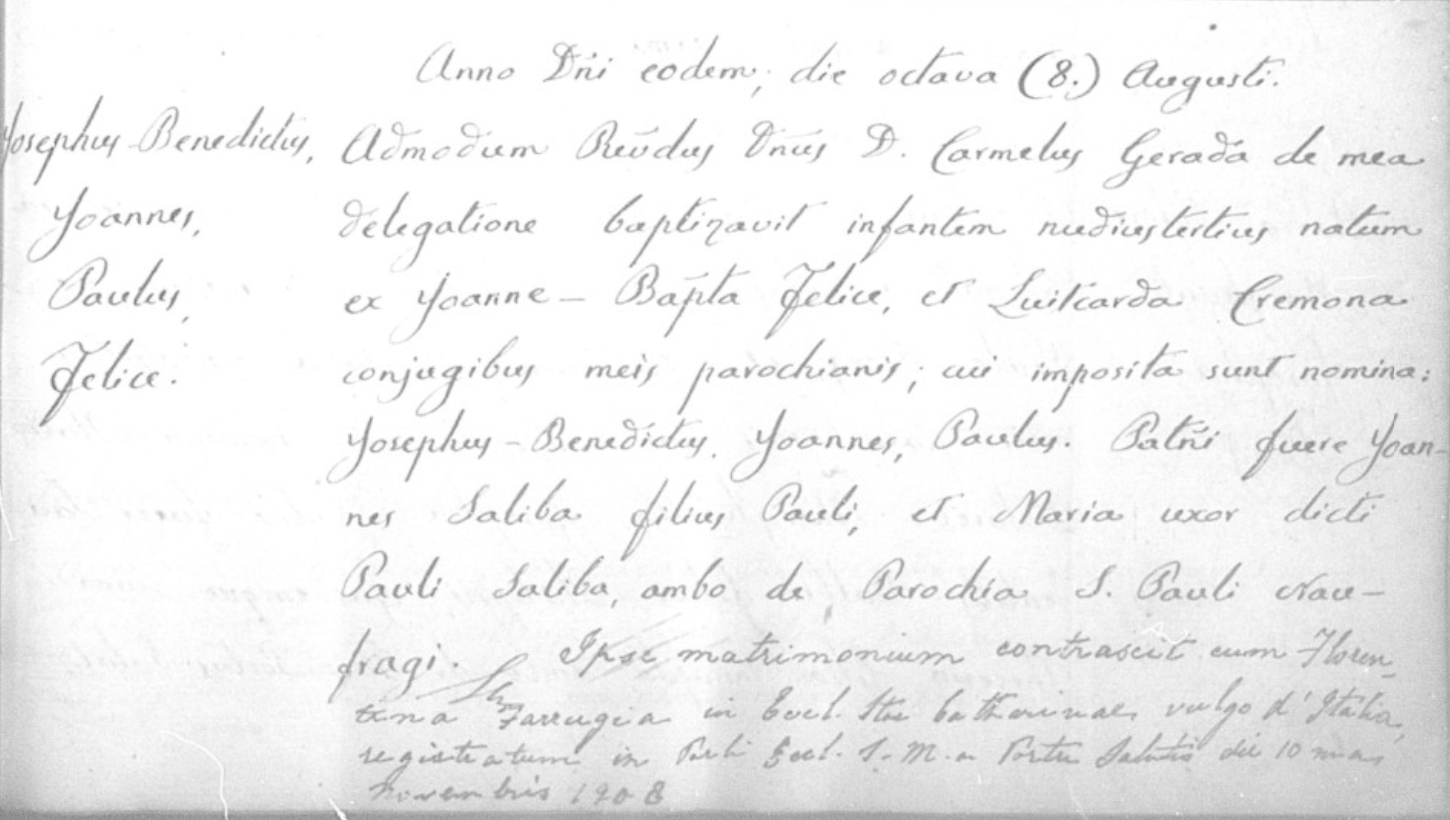 Anno Dñi eodem, die octava (8.) Augusti.
Josephus-Benedictus,
Joannes,
Paulus,
Felice.
Admodum Rev̄dus Dnūs D. Carmelus Gerada de mea
delegatione baptizavit infantem nudiustertius natum
ex Joanne-Bap̄ta Felice, et Luitcarda Cremona
conjugibus meis parochianis; cui imposita sunt nomina:
Josephus-Benedictus, Joannes, Paulus. Patñi fuere Joan-
nes Saliba filius Pauli, et Maria uxor dicti
Pauli Saliba, ambo de Parochia S. Pauli Nau-
fragi. Ipse matrimonium contraxit cum Floren-
tina Farrugia in Eccl. Stae Catharinae vulgo d'Italia,
registratum in Eccl. S. M. a Portu Salutis die 10
novembris 1908